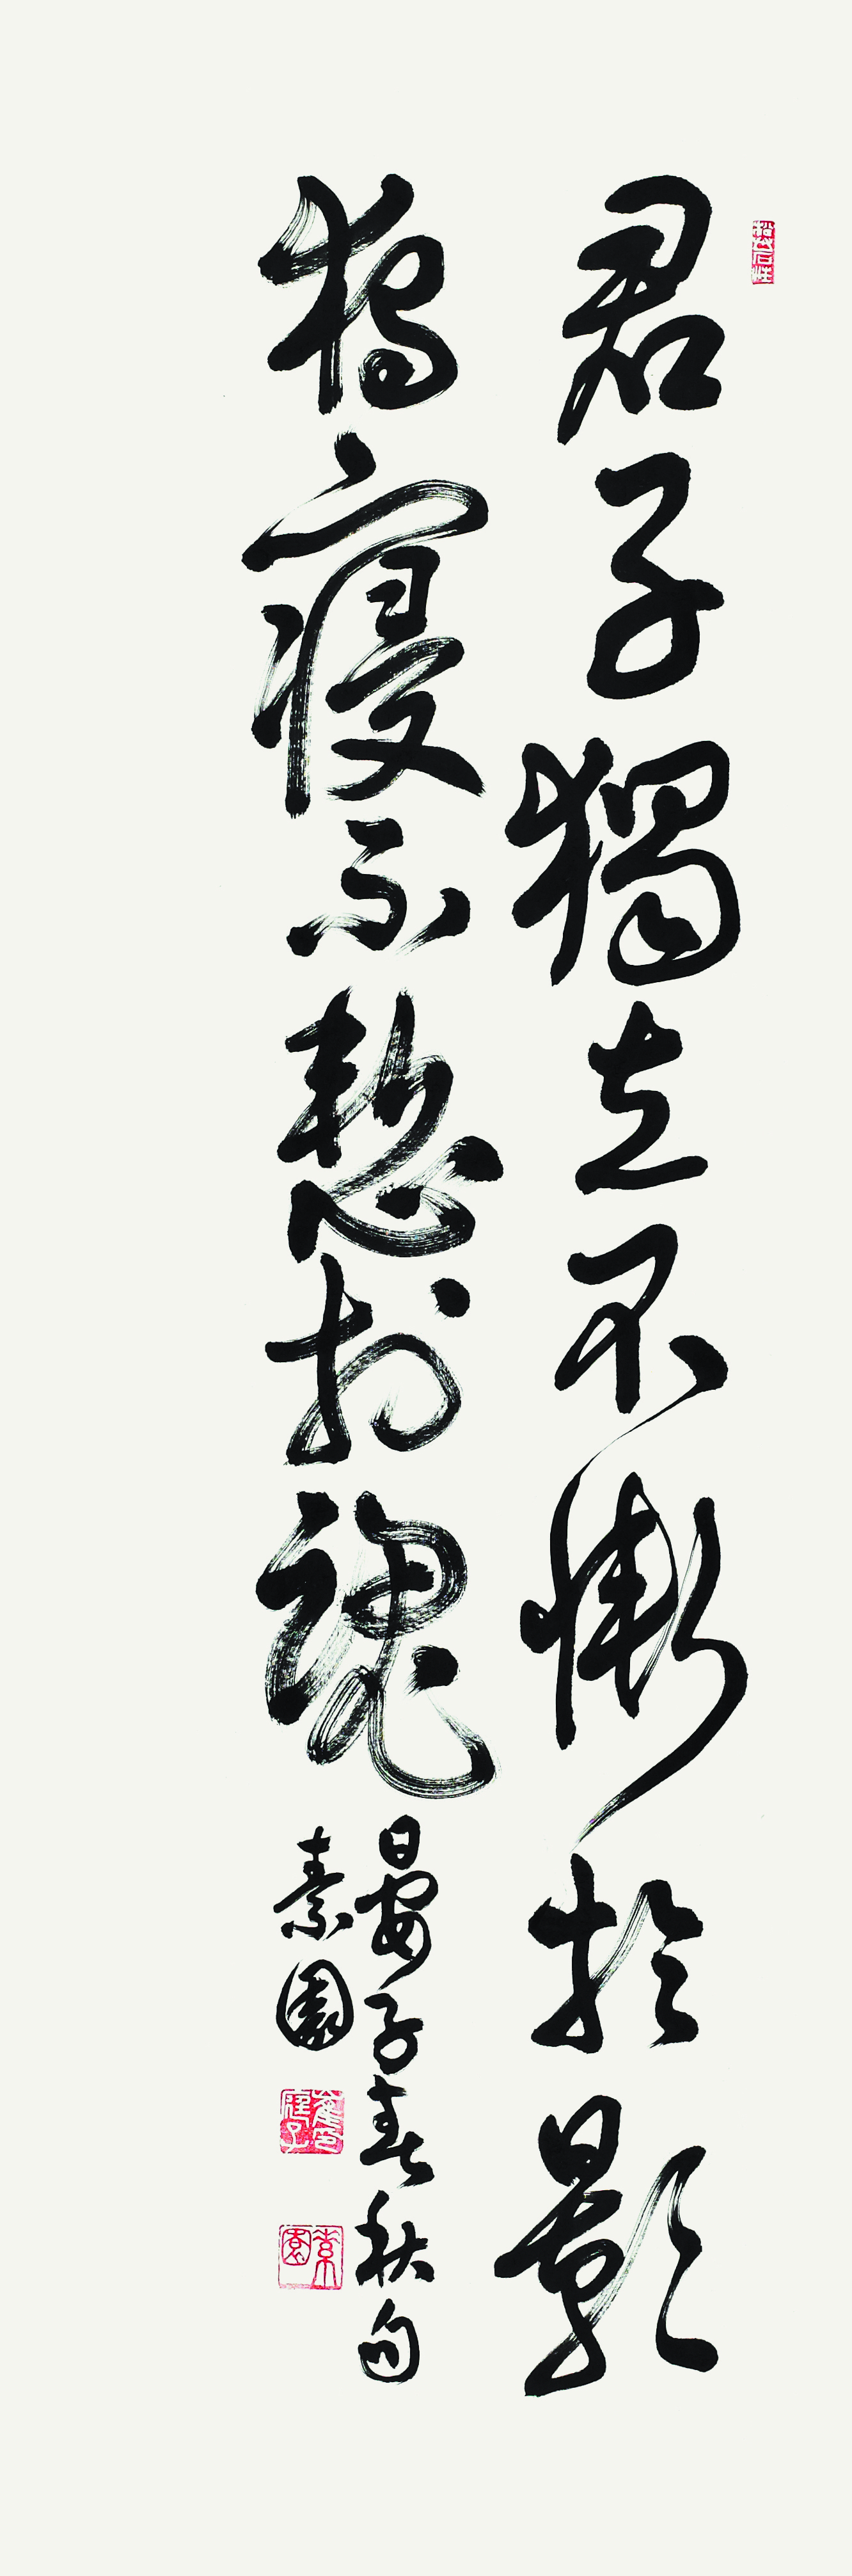 君子獨立不慚於影
獨寢不慙於魂
晏子春秋句
素園
素園